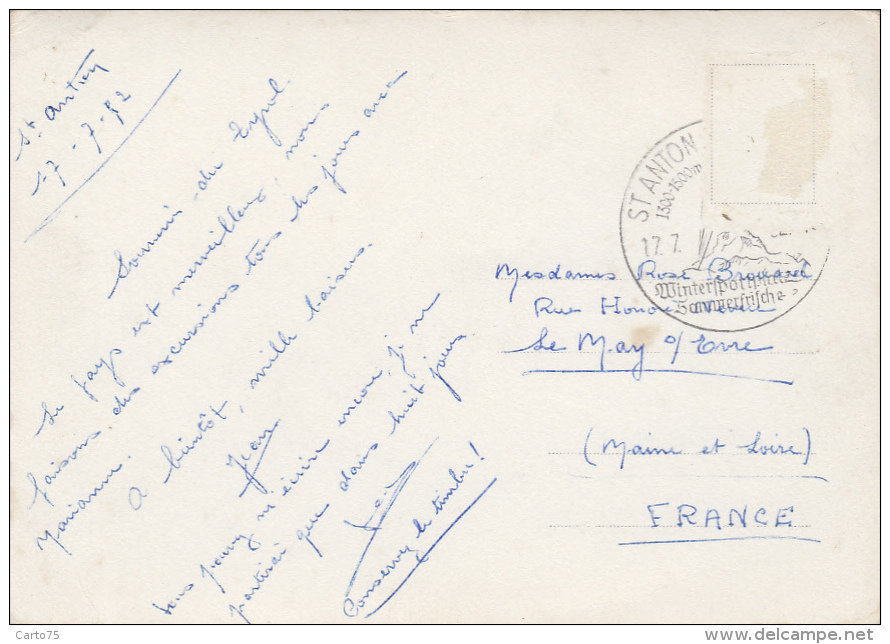 St Anton
17-7-52
Souvenir du Tyrol.
Le pays est merveilleux, nous
faisons des excursions tous les jours avec
Marianne.
A bientôt, mille baisers.
Jean
Vous pouvez m'écrire encore, je ne
partirai que dans huit jours.
Conservez le timbre!
ST ANTON
1300-1500m
17.7.
Wintersportplatz
Sommerfrische
Mesdames Rose Brouard
Rue Honoré
Le May s/ Evre
(Maine et Loire)
FRANCE
Carto75
delcampe.net